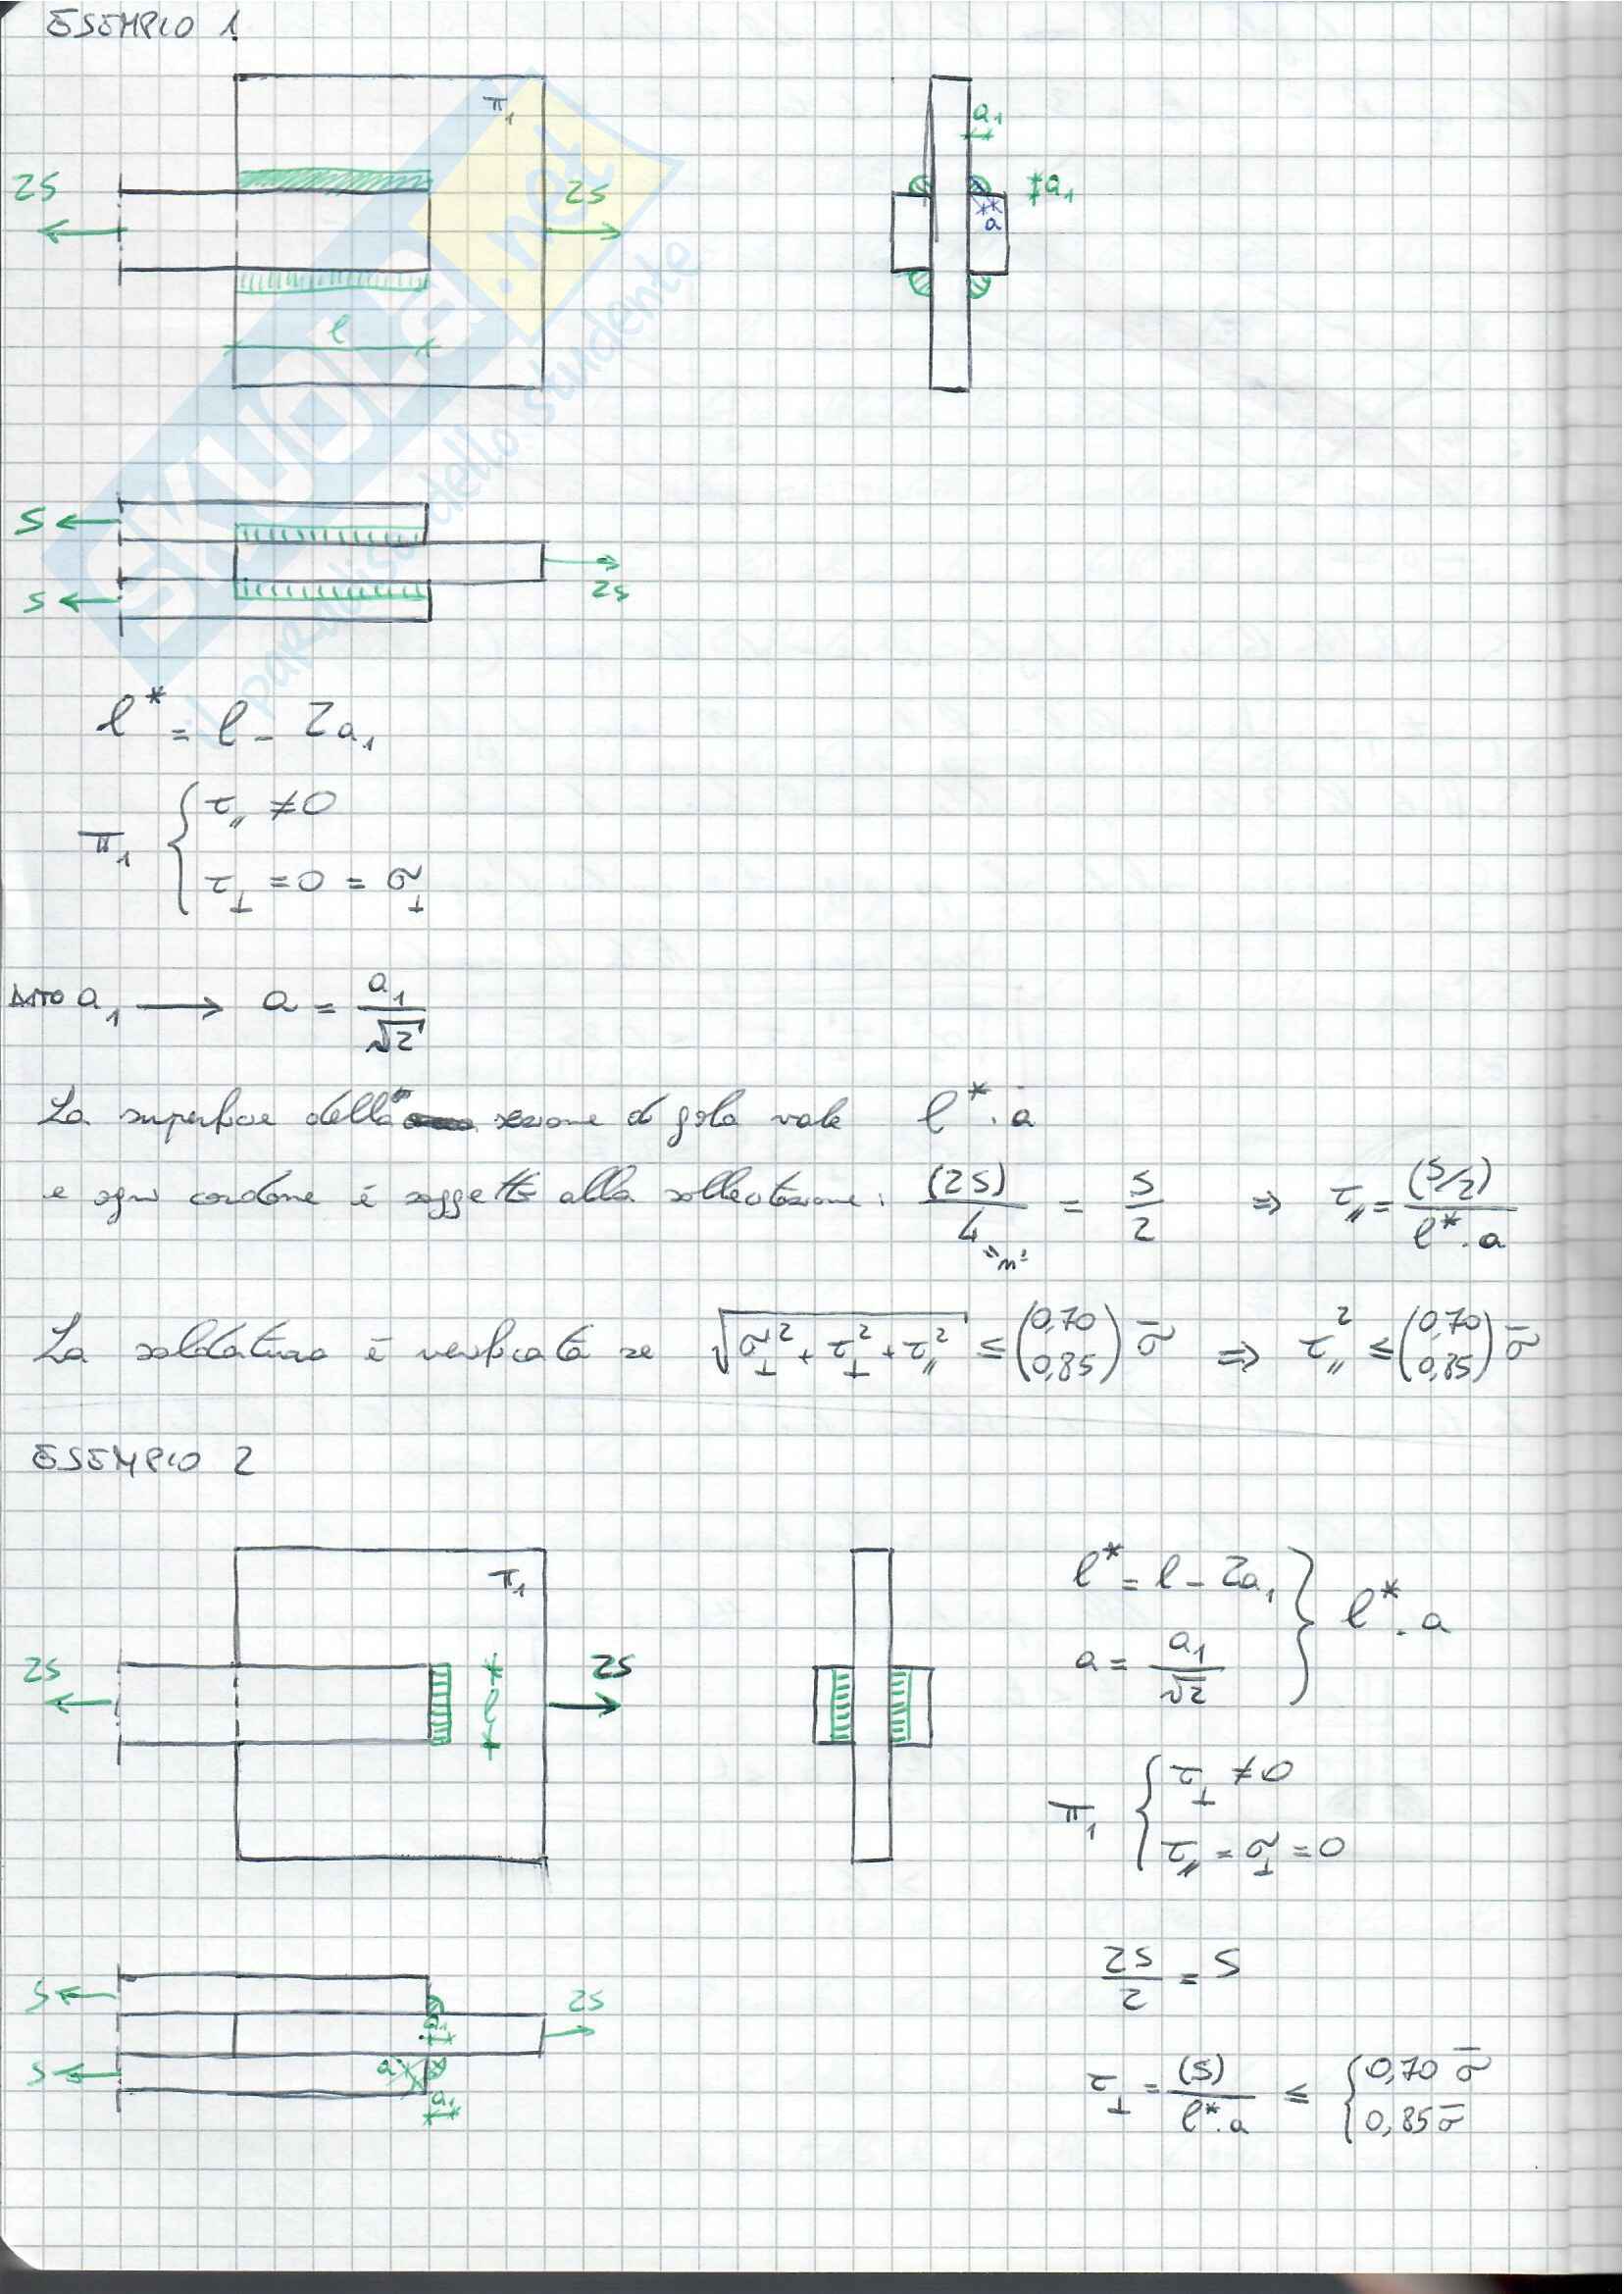 ESEMPIO 1
π₁
a₁
a₁
a
2S
2S
l
S
S
2S
l* = l - 2a₁
π₁ { τ∥ ≠ 0
τ⊥ = 0 = σ⊥
DATO a₁ ⟶ a = a₁/√2
La superficie della sezione di gola vale l* · a
e ogni cordone è soggetto alla sollecitazione: (2S)/4 "n" = S/2 ⇒ τ∥ = (S/2)/(l* · a)
La saldatura è verificata se √(σ⊥² + τ⊥² + τ∥²) ≤ (0,70 0,85) σ̄ ⇒ τ∥² ≤ (0,70 0,85) σ̄
ESEMPIO 2
π₁
2S
l
2S
l* = l - 2a₁
a = a₁/√2
} l* · a
π₁ { τ⊥ ≠ 0
τ∥ = σ⊥ = 0
S
S
2S
a₁
a
a₁
2S/2 = S
τ⊥ = (S)/(l* · a) ≤ { 0,70 σ̄
0,85 σ̄
SKUOLA.net
il paradiso dello studente